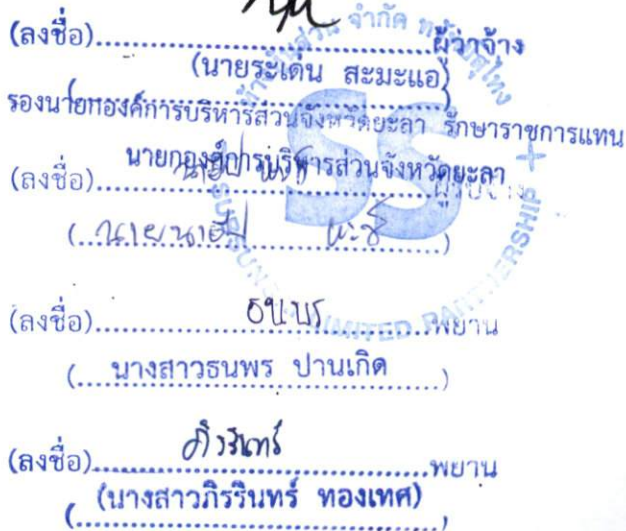 (ลงชื่อ)..............................ผู้ว่าจ้าง
(นายระเด่น สะมะแอ)
รองนายกองค์การบริหารส่วนจังหวัดยะลา รักษาราชการแทน
นายกองค์การบริหารส่วนจังหวัดยะลา
(ลงชื่อ)..............................ผู้รับจ้าง
(....นาย.....................)
(ลงชื่อ)............ธนพร............พยาน
(....นางสาวธนพร ปานเกิด.......)
(ลงชื่อ)......ภิรรินทร์............พยาน
(นางสาวภิรรินทร์ ทองเทศ)
ห้างหุ้นส่วน จำกัด
SS
LIMITED PARTNERSHIP